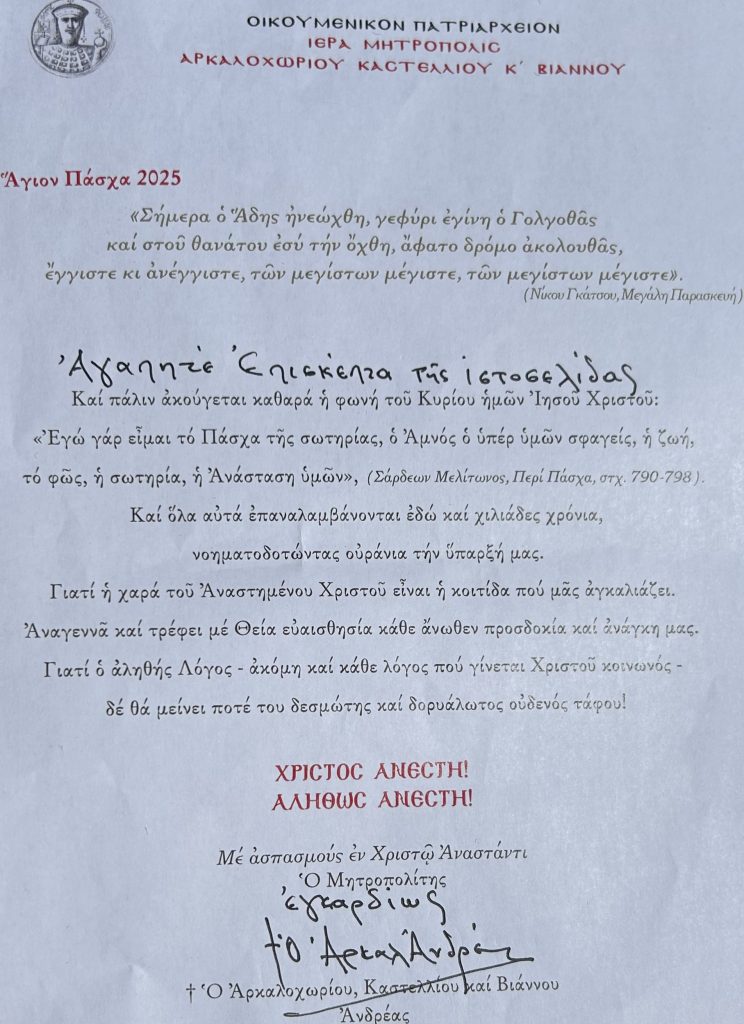 ΟΙΚΟΥΜΕΝΙΚΟΝ ΠΑΤΡΙΑΡΧΕΙΟΝ
ΙΕΡΑ ΜΗΤΡΟΠΟΛΙΣ
ΑΡΚΑΛΟΧΩΡΙΟΥ ΚΑΣΤΕΛΛΙΟΥ Κ΄ ΒΙΑΝΝΟΥ
Ἅγιον Πάσχα 2025
«Σήμερα ὁ Ἅδης ἠνεώχθη, γεφύρι ἐγίνη ὁ Γολγοθᾶς
καί στοῦ θανάτου ἐσύ τήν ὄχθη, ἄφατο δρόμο ἀκολουθᾶς,
ἔγγιστε κι ἀνέγγιστε, τῶν μεγίστων μέγιστε, τῶν μεγίστων μέγιστε».
(Νίκου Γκάτσου, Μεγάλη Παρασκευή)
Ἀγαπητέ Ἐπισκέπτα τῆς ἱστοσελίδας
Καί πάλιν ἀκούγεται καθαρά ἡ φωνή τοῦ Κυρίου ἡμῶν Ἰησοῦ Χριστοῦ:
«Ἐγώ γάρ εἶμαι τό Πάσχα τῆς σωτηρίας, ὁ Ἀμνός ὁ ὑπέρ ὑμῶν σφαγείς, ἡ ζωή,
τό φῶς, ἡ σωτηρία, ἡ Ἀνάσταση ὑμῶν», (Σάρδεων Μελίτωνος, Περί Πάσχα, στχ. 790-798).
Καί ὅλα αὐτά ἐπαναλαμβάνονται ἐδώ καί χιλιάδες χρόνια,
νοηματοδοτώντας οὐράνια τήν ὕπαρξή μας.
Γιατί ἡ χαρά τοῦ Ἀναστημένου Χριστοῦ εἶναι ἡ κοιτίδα πού μᾶς ἀγκαλιάζει.
Ἀναγεννᾶ καί τρέφει μέ Θεία εὐαισθησία κάθε ἄνωθεν προσδοκία καί ἀνάγκη μας.
Γιατί ὁ ἀληθής Λόγος - ἀκόμη καί κάθε λόγος πού γίνεται Χριστοῦ κοινωνός -
δέ θά μείνει ποτέ του δεσμώτης καί δορυάλωτος οὐδενός τάφου!
ΧΡΙΣΤΟΣ ΑΝΕΣΤΗ!
ΑΛΗΘΩΣ ΑΝΕΣΤΗ!
Μέ ἀσπασμούς ἐν Χριστῷ Ἀναστάντι
Ὁ Μητροπολίτης
ἐγκαρδίως
† Ὁ Ἀρκαλ Ἀνδρέας
† Ὁ Ἀρκαλοχωρίου, Καστελλίου καί Βιάννου
Ἀνδρέας